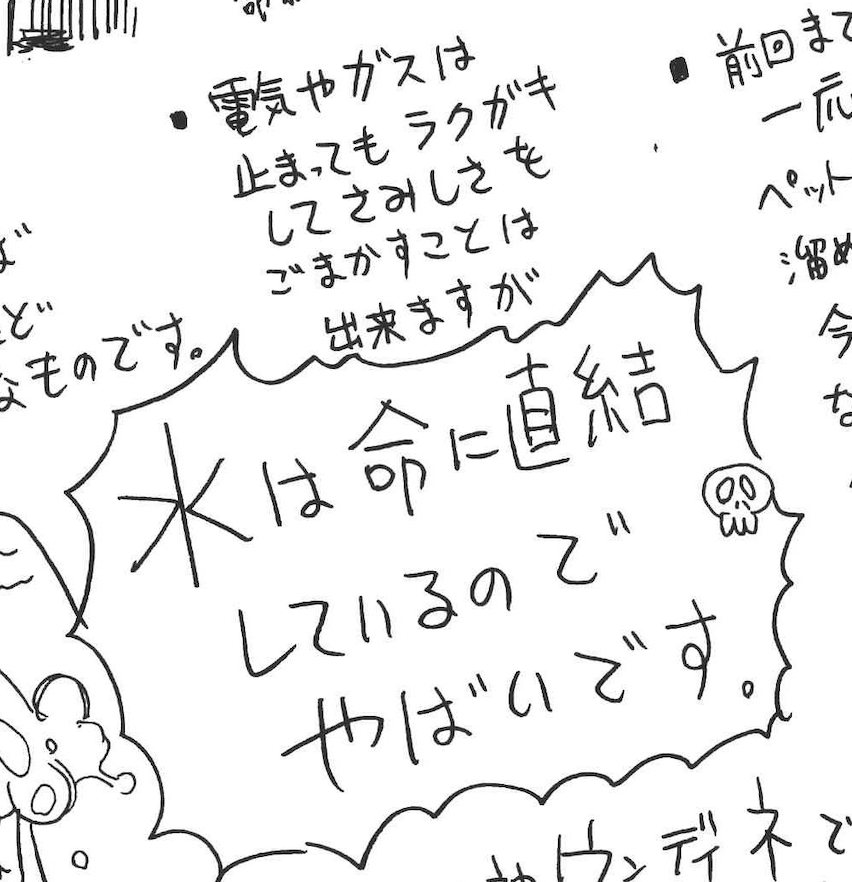 ・電気やガスは
止まってもラクガキ
してさみしさを
ごまかすことは
出来ますが
水は命に直結
しているので
やばいです。
・前回まで
一応
ペット
溜め
今
な
ど
なものです。
ウンディネで